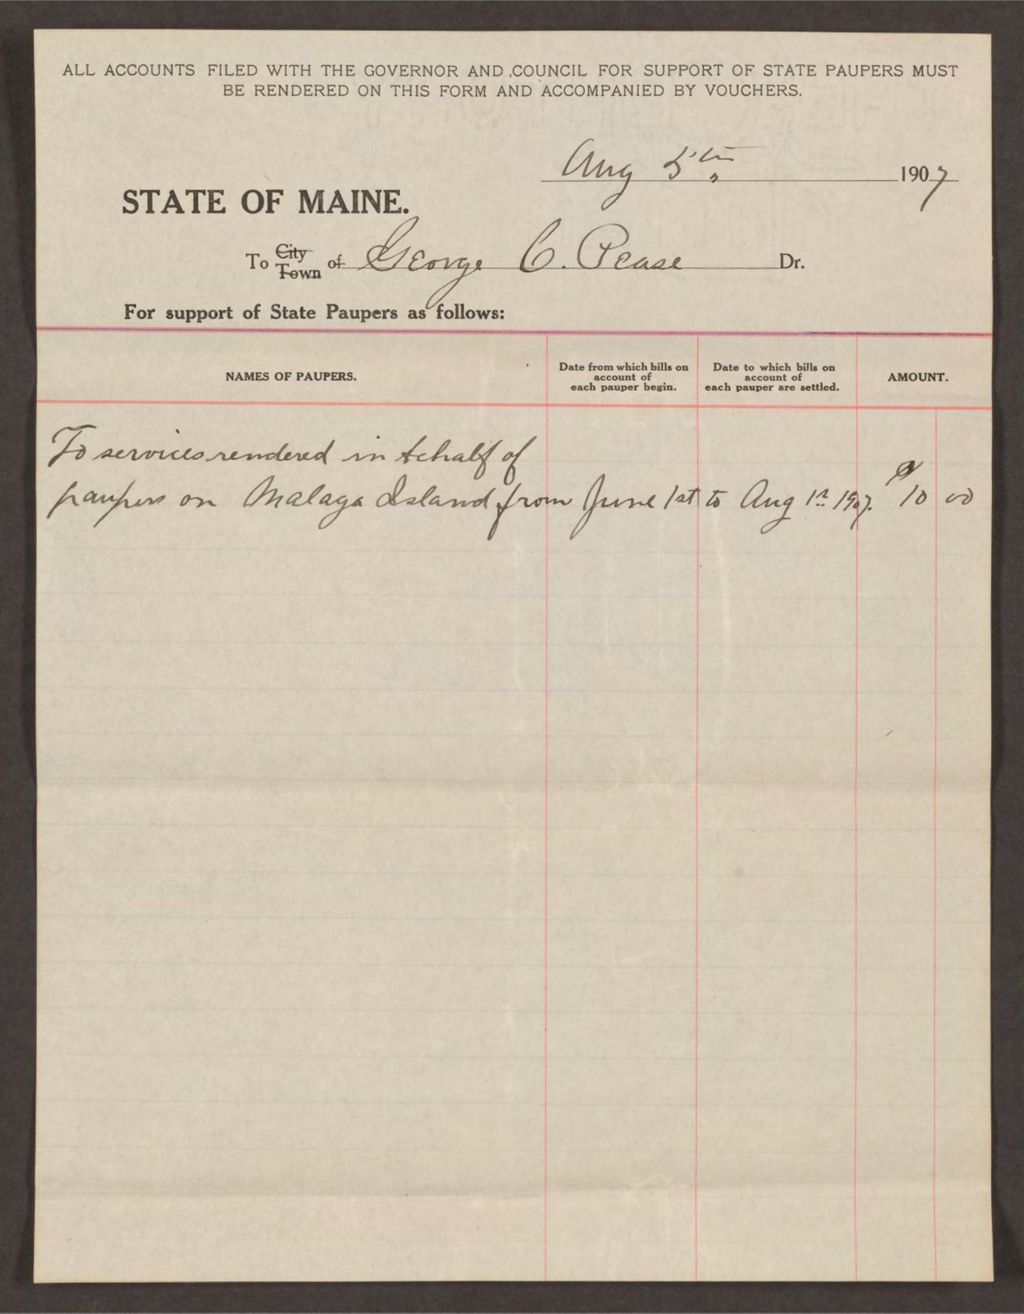 ALL ACCOUNTS FILED WITH THE GOVERNOR AND COUNCIL FOR SUPPORT OF STATE PAUPERS MUST
BE RENDERED ON THIS FORM AND ACCOMPANIED BY VOUCHERS.
Aug 5th, 1907
STATE OF MAINE.
To City Town of George C. Pease Dr.
For support of State Paupers as follows:
NAMES OF PAUPERS.
Date from which bills on
account of
each pauper begin.
Date to which bills on
account of
each pauper are settled.
AMOUNT.
To services rendered in behalf of
paupers on Malaga Island, from June 1st to Aug 1st 1907. $10 00